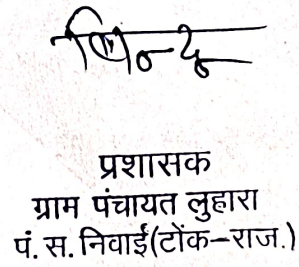 प्रशासक
ग्राम पंचायत लुहारा
पं. स. निवाई(टोंक–राज.)